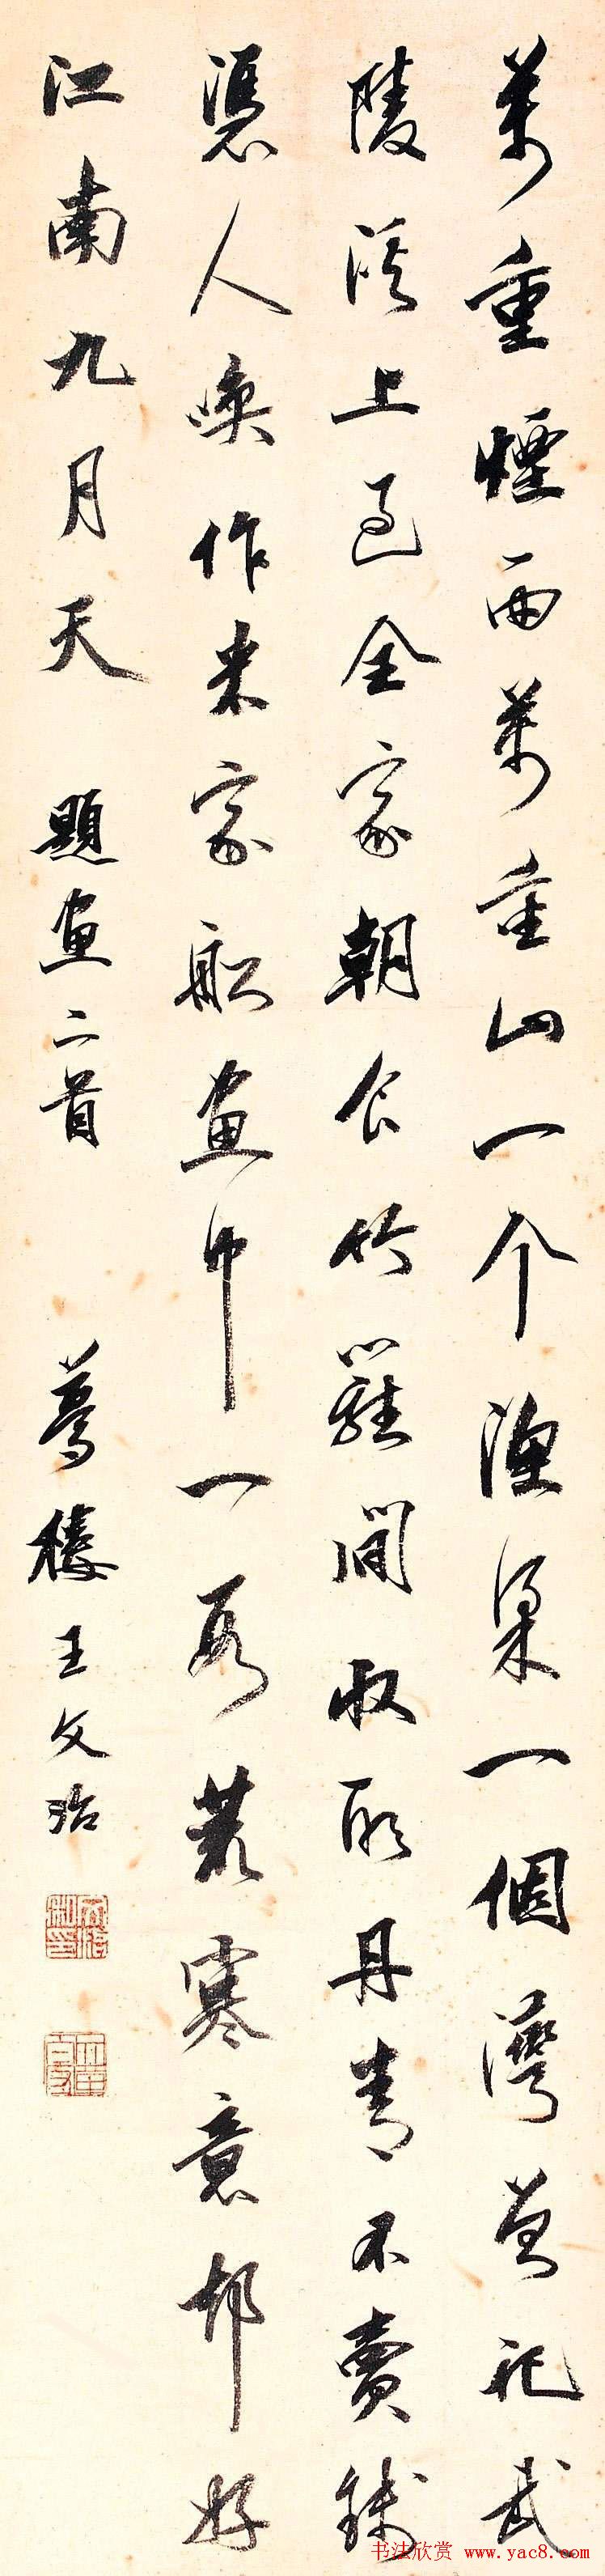 萬重煙雨萬重山一个漁梁一個灣曾記武
陵溪上過全家朝食竹籬間收取丹青不賣錢
憑人喚作米家船畫中一段荒寒意却好
江南九月天 題畫二首 夢樓王文治
书法欣赏 www.yac8.com